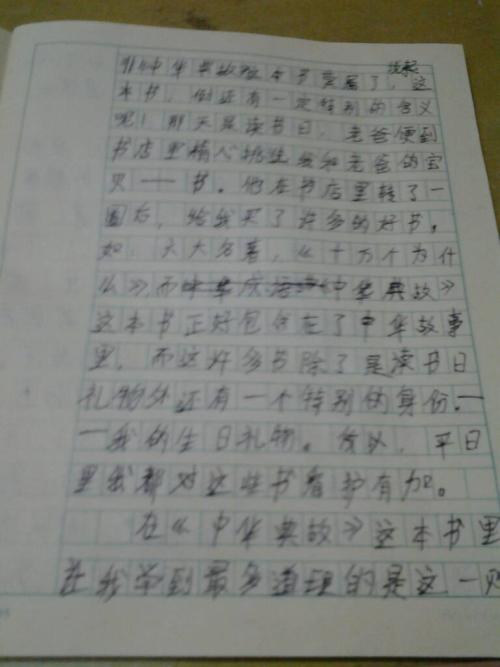 《中华典故》今日属了，说起这
本书，倒还有一定特别的含义
呢！那天是读书日，老爸便到
书店里精心挑选我和老爸的宝
贝——书。他在书店里转了一
圈后，给我买了许多的好书，
如：六大名著，《十万个为什
么》，而《中华典故》
这本书正好包含在了中华故事
里，而这许多书除了是读书日
礼物外还有一个特别的身份，—
—我的生日礼物。所以，平日
里我都对这些书看护有加。
在《中华典故》这本书里
让我学到最多道理的是这一则